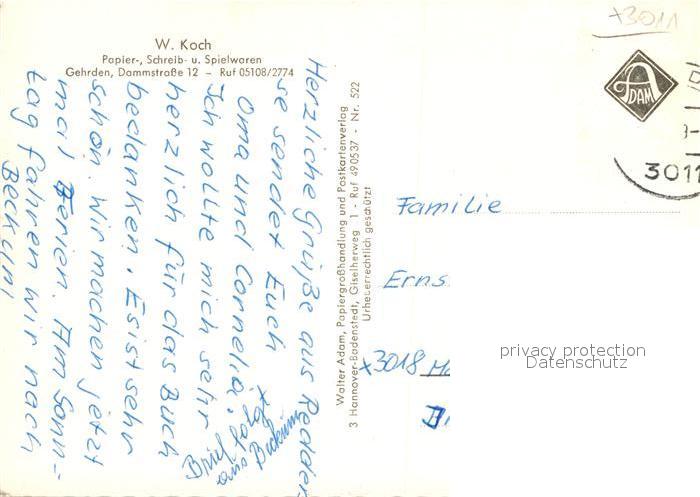 W. Koch
Papier-, Schreib- u. Spielwaren
Gehrden, Dammstraße 12 – Ruf 05108/2774
Herzliche Grüße aus Redder
se sendet Euch
Oma und Cornelia.
Ich wollte mich sehr
herzlich für das Buch
bedanken. Es ist sehr
schön. Wir machen jetzt
mal Ferien. Am Sonn=
tag fahren wir nach
Beckum!
Brief folgt
aus Beckum
Walter Adam, Papiergroßhandlung und Postkartenverlag
3 Hannover-Badenstedt, Giselherweg 1 - Ruf 490537 - Nr. 522
Urheberrechtlich geschützt
x3011
ADAM
3011
Familie
Erns
x3018
privacy protection
Datenschutz